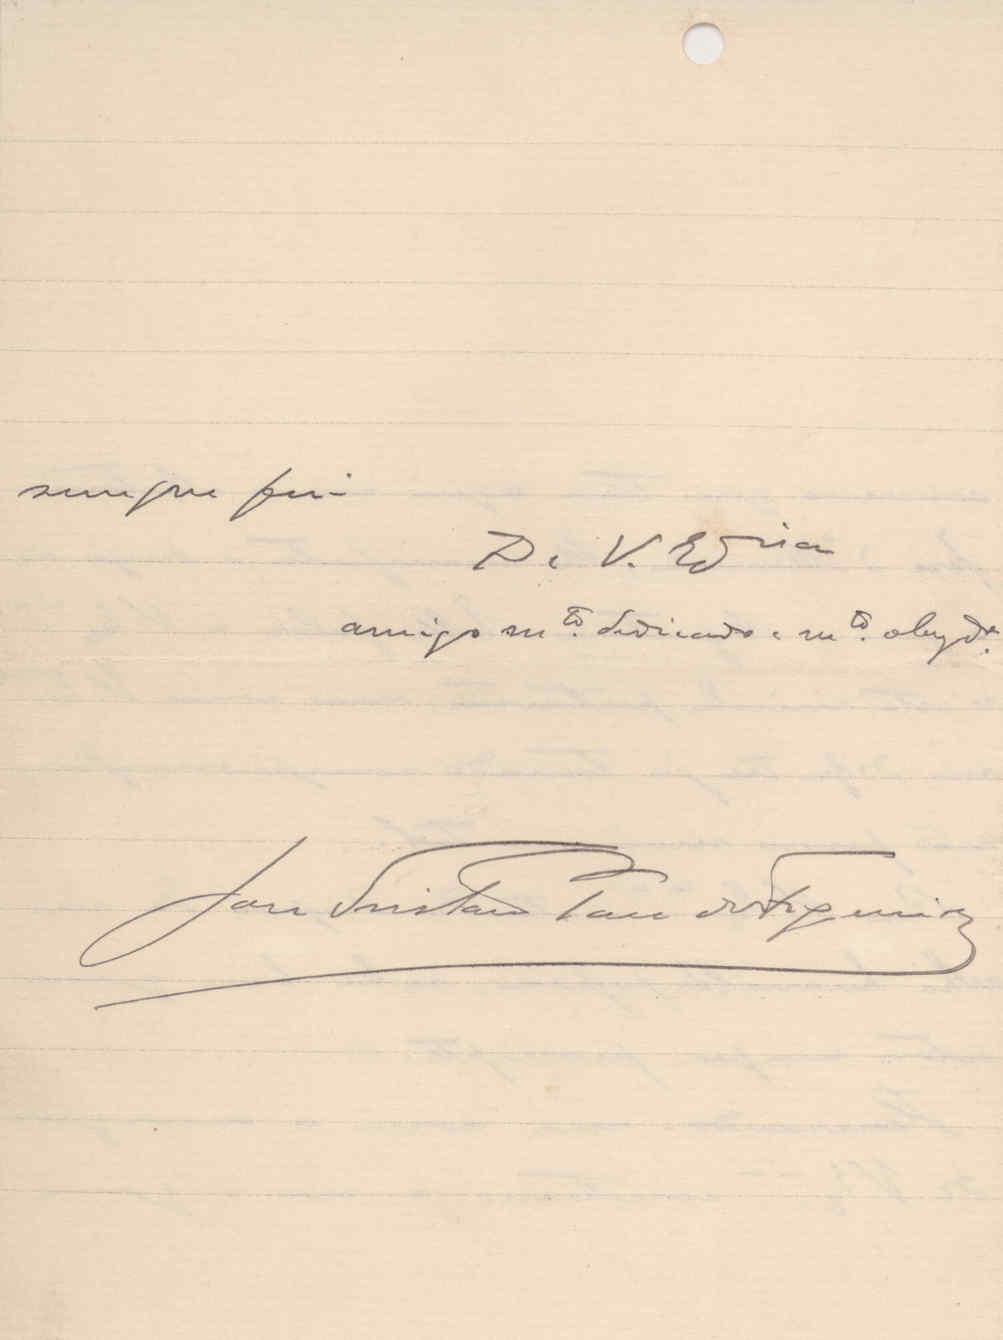 sempre fui
De V. Ex.cia
amigo m.to dedicado e m.to obrg.do
José Tristão Paes de Figueiredo